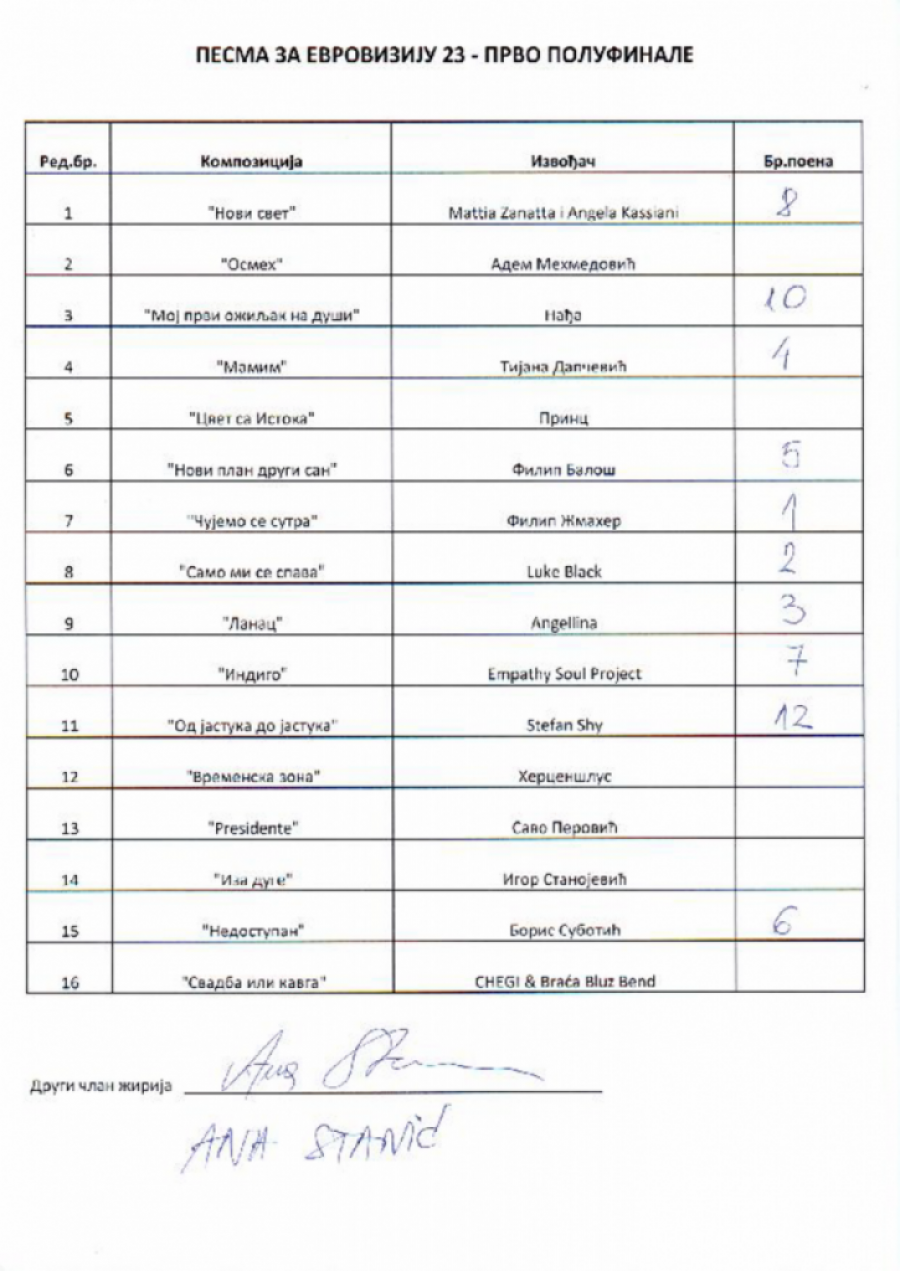 ПЕСМА ЗА ЕВРОВИЗИЈУ 23 - ПРВО ПОЛУФИНАЛЕ
Ред.бр. Композиција Извођач Бр.поена
1 "Нови свет" Mattia Zanatta i Angela Kassiani 8
2 "Осмех" Адем Мехмедовић
3 "Мој први ожиљак на души" Нађа 10
4 "Мамим" Тијана Дапчевић 4
5 "Цвет са Истока" Принц
6 "Нови план други сан" Филип Балош 5
7 "Чујемо се сутра" Филип Жмахер 1
8 "Само ми се спава" Luke Black 2
9 "Ланац" Angellina 3
10 "Индиго" Empathy Soul Project 7
11 "Од јастука до јастука" Stefan Shy 12
12 "Временска зона" Херценшлус
13 "Presidente" Саво Перовић
14 "Иза дуге" Игор Станојевић
15 "Недоступан" Борис Суботић 6
16 "Свадба или кавга" CHEGI & Braća Bluz Bend
Други члан жирија
ANA STANIĆ